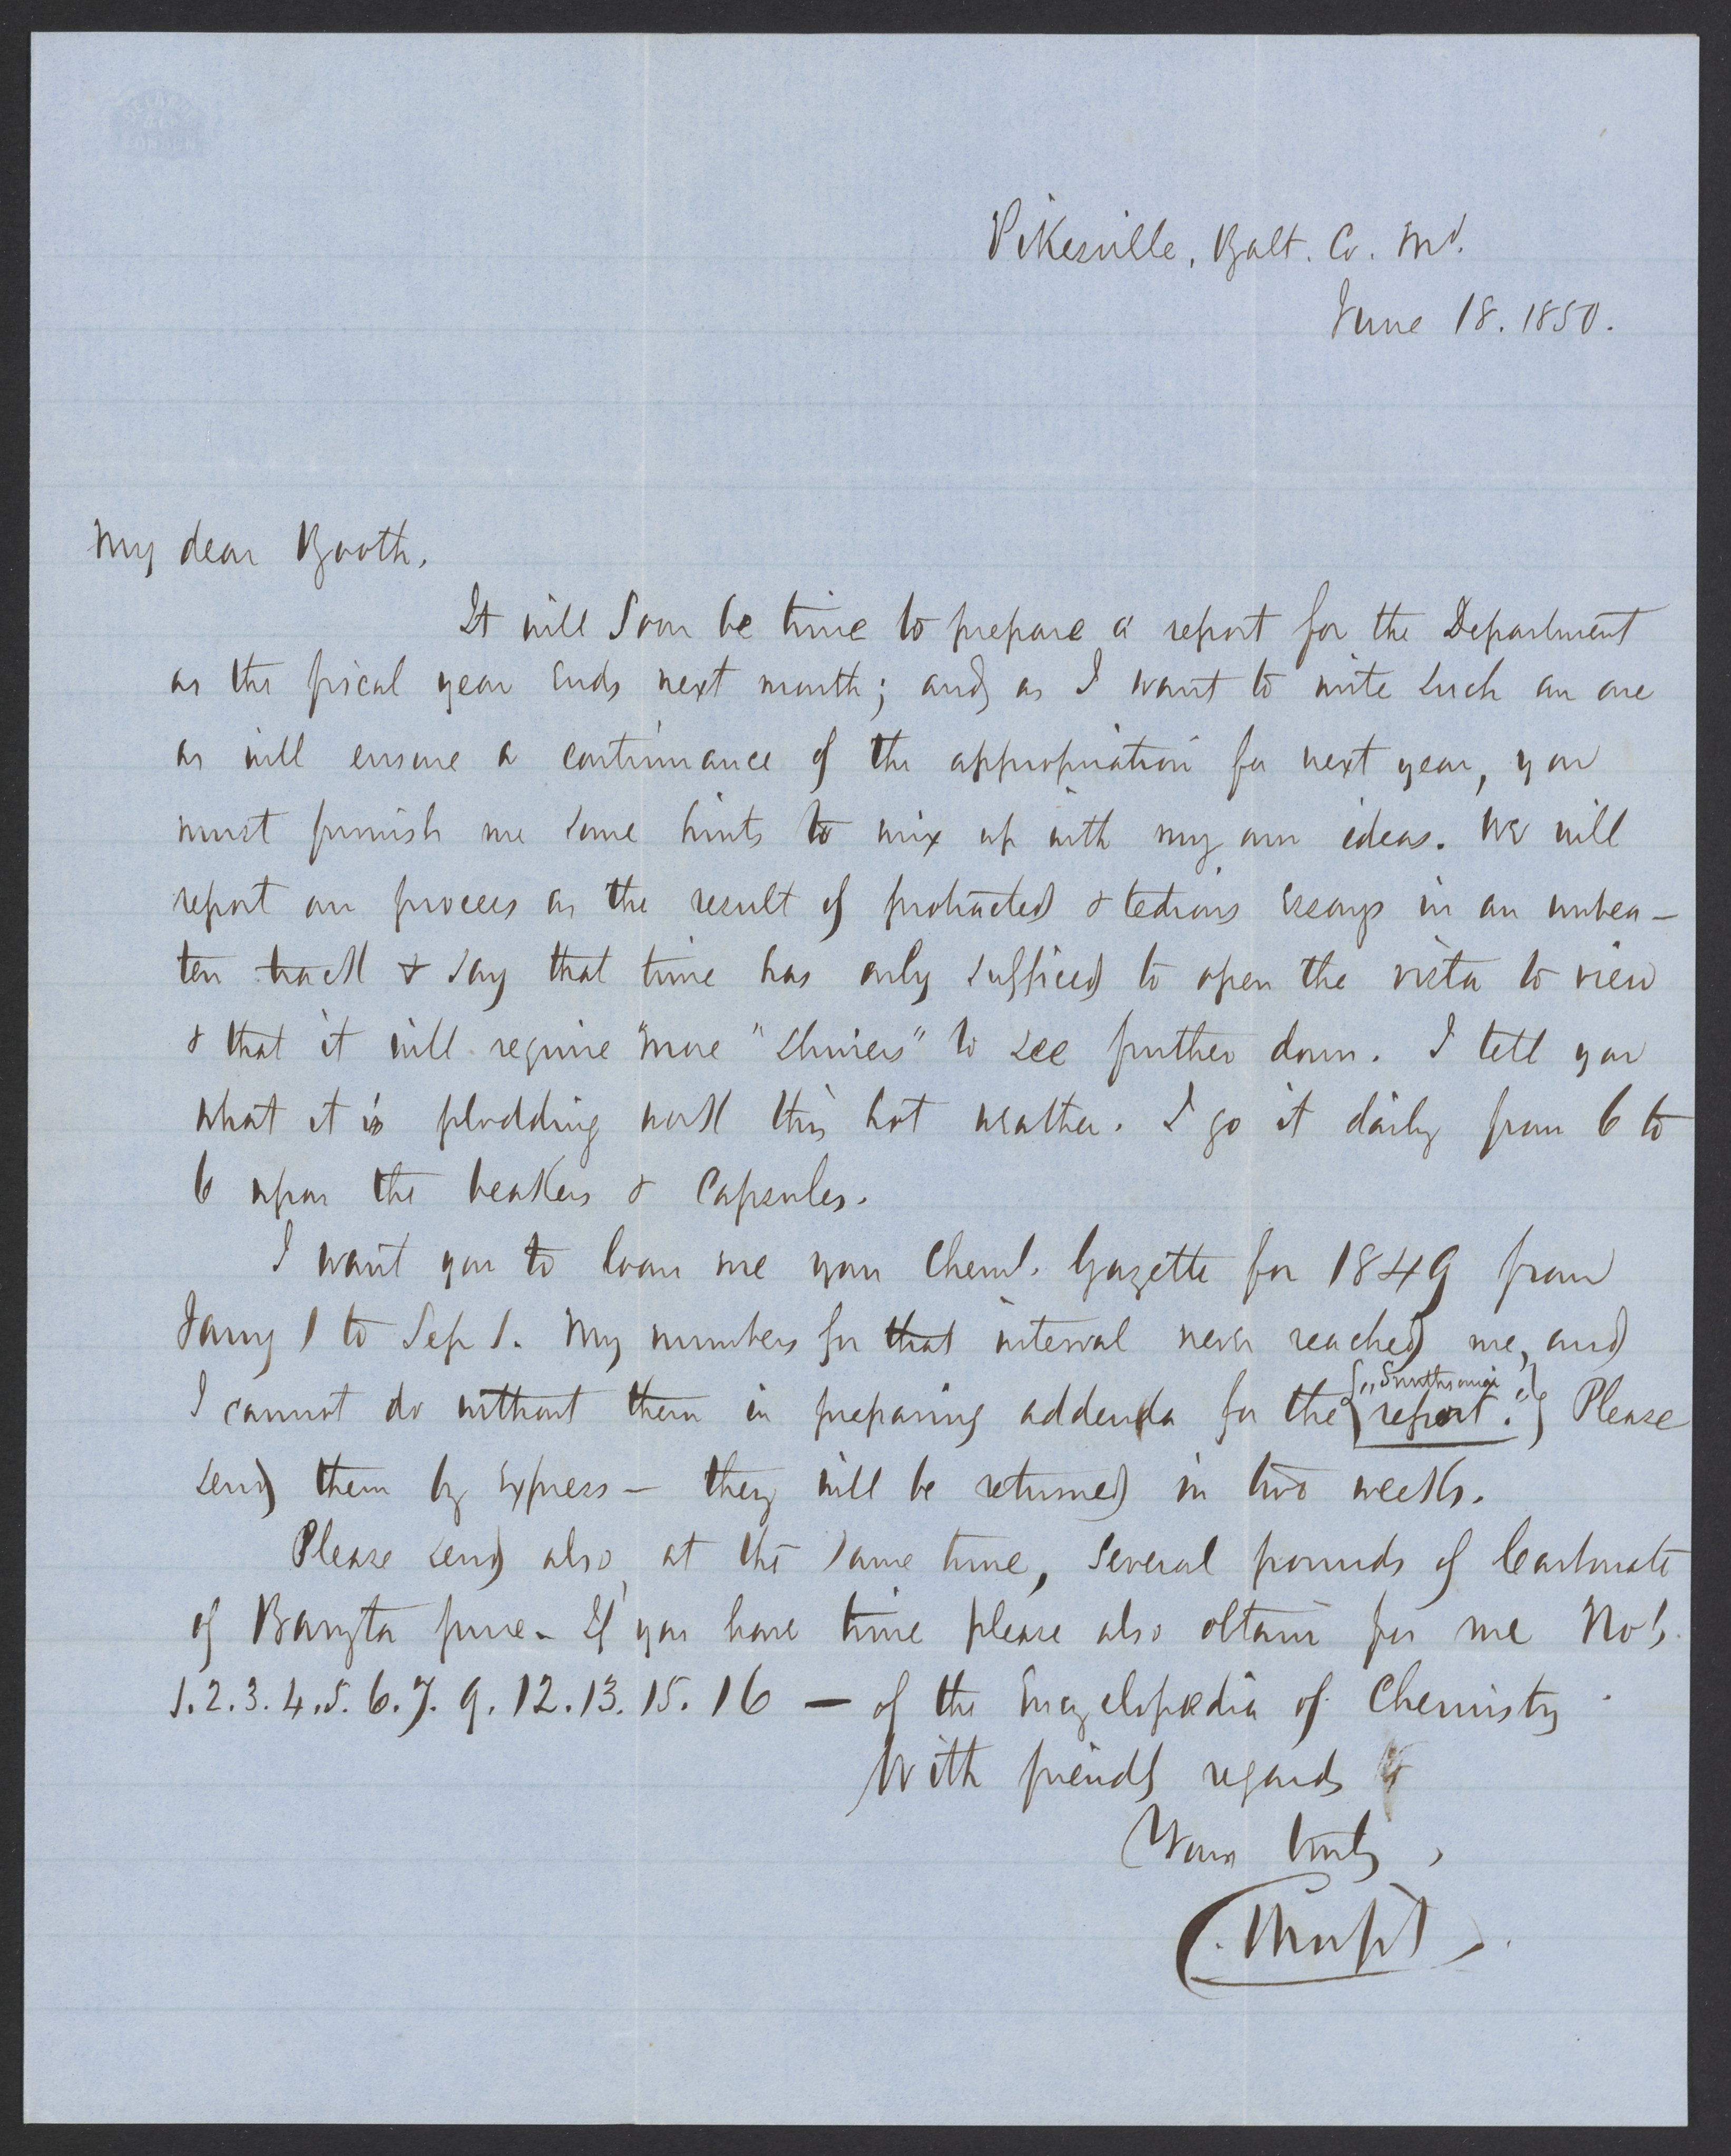 Pikesville, Balt. Co. Md.
June 18. 1850.
My dear Booth,
It will soon be time to prepare a report for the Department
as the fiscal year ends next month; and as I want to write such an one
as will ensure a continuance of the appropriation for next year, you
must furnish me some hints to mix up with my own ideas. We will
report our process as the result of protracted & tedious essays in an unbea-
ten track & say that time has only sufficed to open the vista to view
& that it will require more "shiners" to see further down. I tell you
what it is plodding work this hot weather. I go it daily from 6 to
6 upon the beakers & capsules.
I want you to loan me your Cheml. Gazette for 1849 from
Jany 1 to Sep 1. My numbers for that interval never reached me, and
I cannot do without them in preparing addenda for the {"Smithsonian
report."} Please
send them by express — they will be returned in two weeks.
Please send also, at the same time, several pounds of Carbonate
of Baryta pure. If you have time please also obtain for me No's.
1.2.3.4.5.6.7.9.12.13.15.16 — of the Encyclopædia of Chemistry.
With friendly regards
Yours truly,
C. Morfit